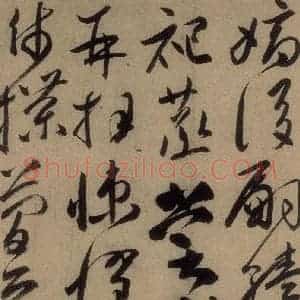 嫡後嗣續
祀蒸嘗
再拜悚懼
牋牒簡
Shufaziliao.COM